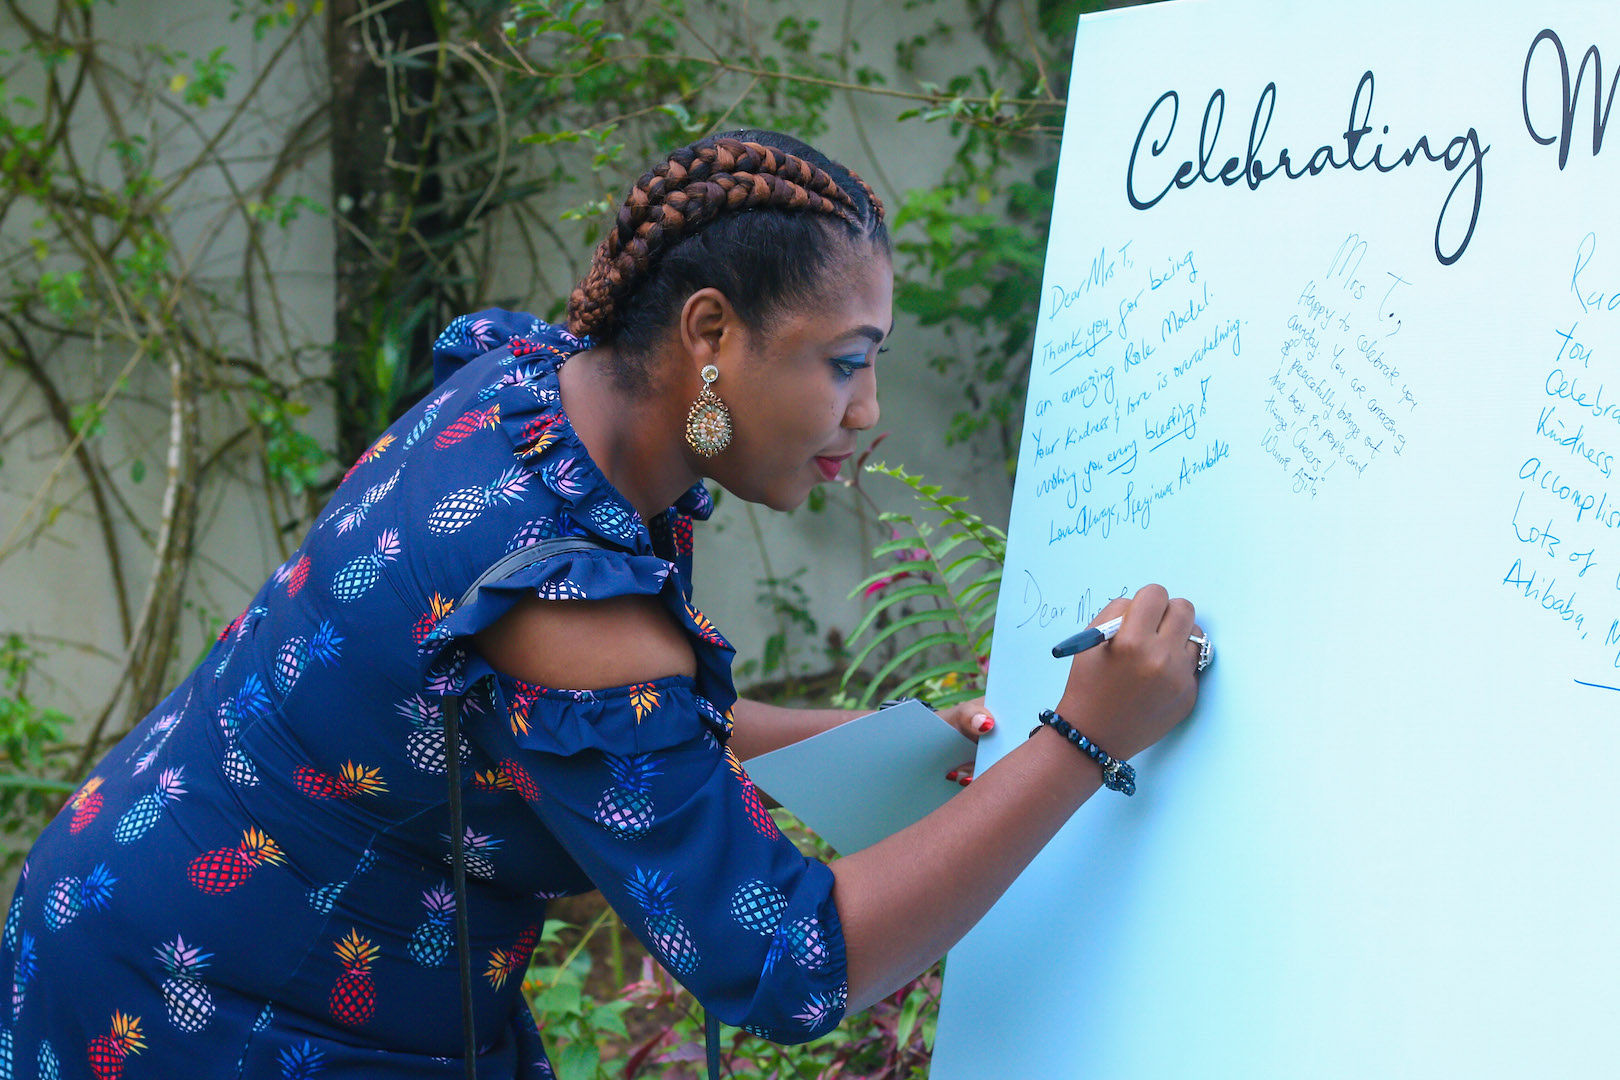 Celebrating M
Dear Mrs T.,
Thank you for being
an amazing Role Model.
Your Kindness & love is overwhelming.
wishing you every blessing!
Love Always, Azubike
Mrs T.,
Happy to celebrate you
anyday. You are amazing
& peacefully brings out
the best in people and
things! Cheers!
You
Celebra
Kindness,
accomplis
Lots of
Alibaba,
Dear